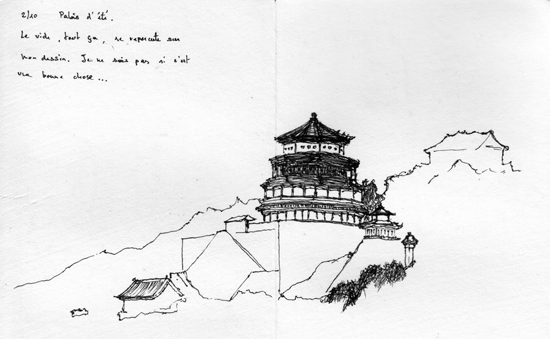 2/10 Palais d'été.
Le vide, tout ça, se repercute sur
mon dessin. Je ne sais pas si c'est
une bonne chose...